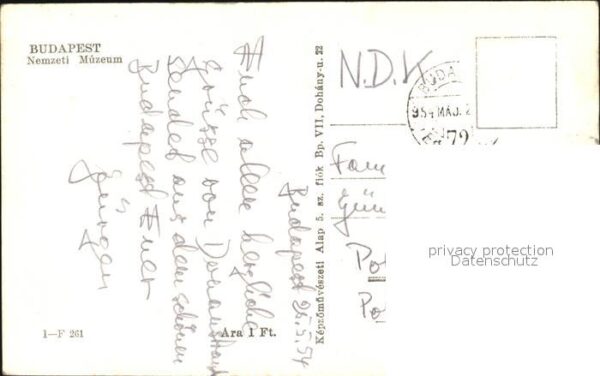 BUDAPEST
Nemzeti Múzeum
Budapest 25.5.54
Euch allen herzliche
Grüsse vom Donaustrand
sendet aus dem schönen
Budapest Euer
Jürgen
I—F 261
Ara 1 Ft.
Képzőművészeti Alap 5. sz. fiók Bp. VII, Dohány-u. 22
N.D.K
BUDA
954 MÁJ. 2
72
Fam
Gün
Po
Po
privacy protection
Datenschutz